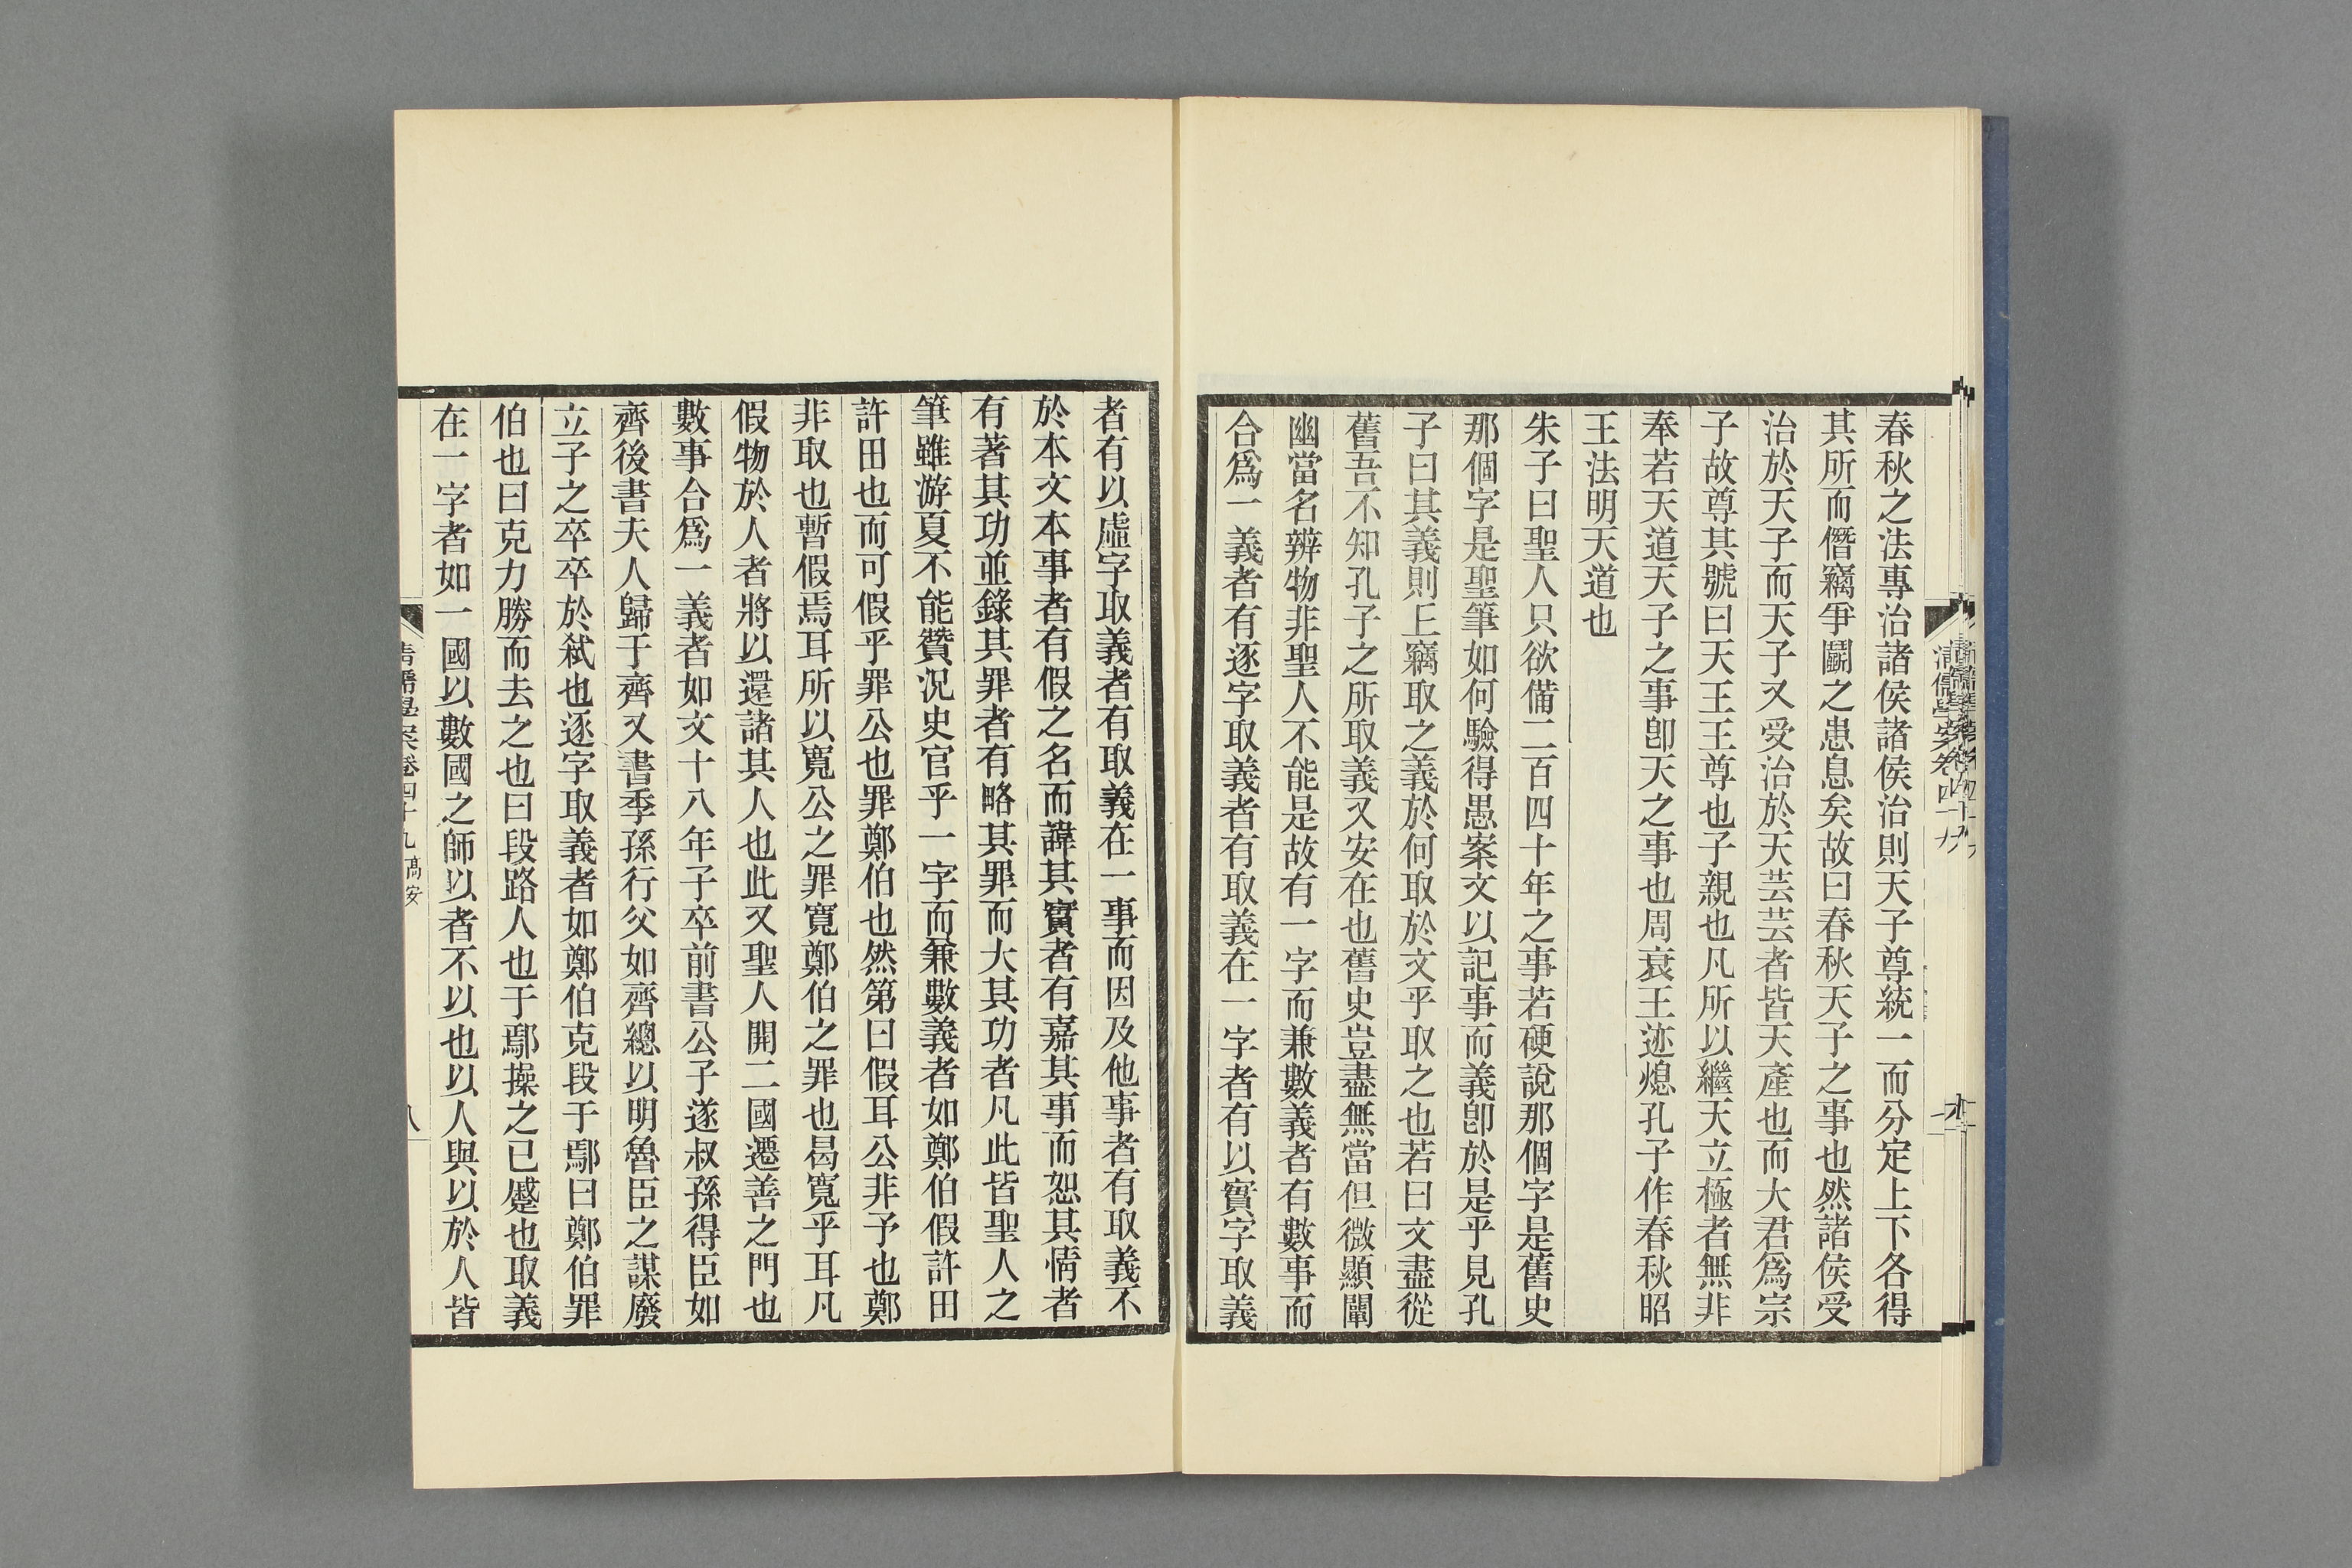 春秋之法專治諸侯諸侯治則天子尊統一而分定上下各得
其所而僭竊爭鬭之患息矣故曰春秋天子之事也然諸侯受
治於天子而天子又受治於天芸芸者皆天產也而大君爲宗
子故尊其號曰天王王尊也子親也凡所以繼天立極者無非
奉若天道天子之事卽天之事也周衰王迹熄孔子作春秋昭
王法明天道也
朱子曰聖人只欲備二百四十年之事若硬說那個字是舊史
那個字是聖筆如何驗得愚案文以記事而義卽於是乎見孔
子曰其義則上竊取之義於何取於文乎取之也若曰文盡從
舊吾不知孔子之所取義又安在也舊史豈盡無當但微顯闡
幽當名辨物非聖人不能是故有一字而兼數義者有數事而
合爲一義者有逐字取義者有取義在一字者有以實字取義
者有以虛字取義者有取義在一事而因及他事者有取義不
於本文本事者有假之名而諱其實者有嘉其事而恕其情者
有著其功並錄其罪者有略其罪而大其功者凡此皆聖人之
筆雖游夏不能贊況史官乎一字而兼數義者如鄭伯假許田
許田也而可假乎罪公也罪鄭伯也然第曰假耳公非予也鄭
非取也暫假焉耳所以寬公之罪寬鄭伯之罪也曷寬乎耳凡
假物於人者將以還諸其人也此又聖人開二國遷善之門也
數事合爲一義者如文十八年子卒前書公子遂叔孫得臣如
齊後書夫人歸于齊又書季孫行父如齊總以明魯臣之謀廢
立子之卒卒於弒也逐字取義者如鄭伯克段于鄢曰鄭伯罪
伯也曰克力勝而去之也曰段路人也于鄢操之已蹙也取義
在一字者如一國以數國之師以者不以也以人與以於人皆
清儒學案卷四十九 高安
八